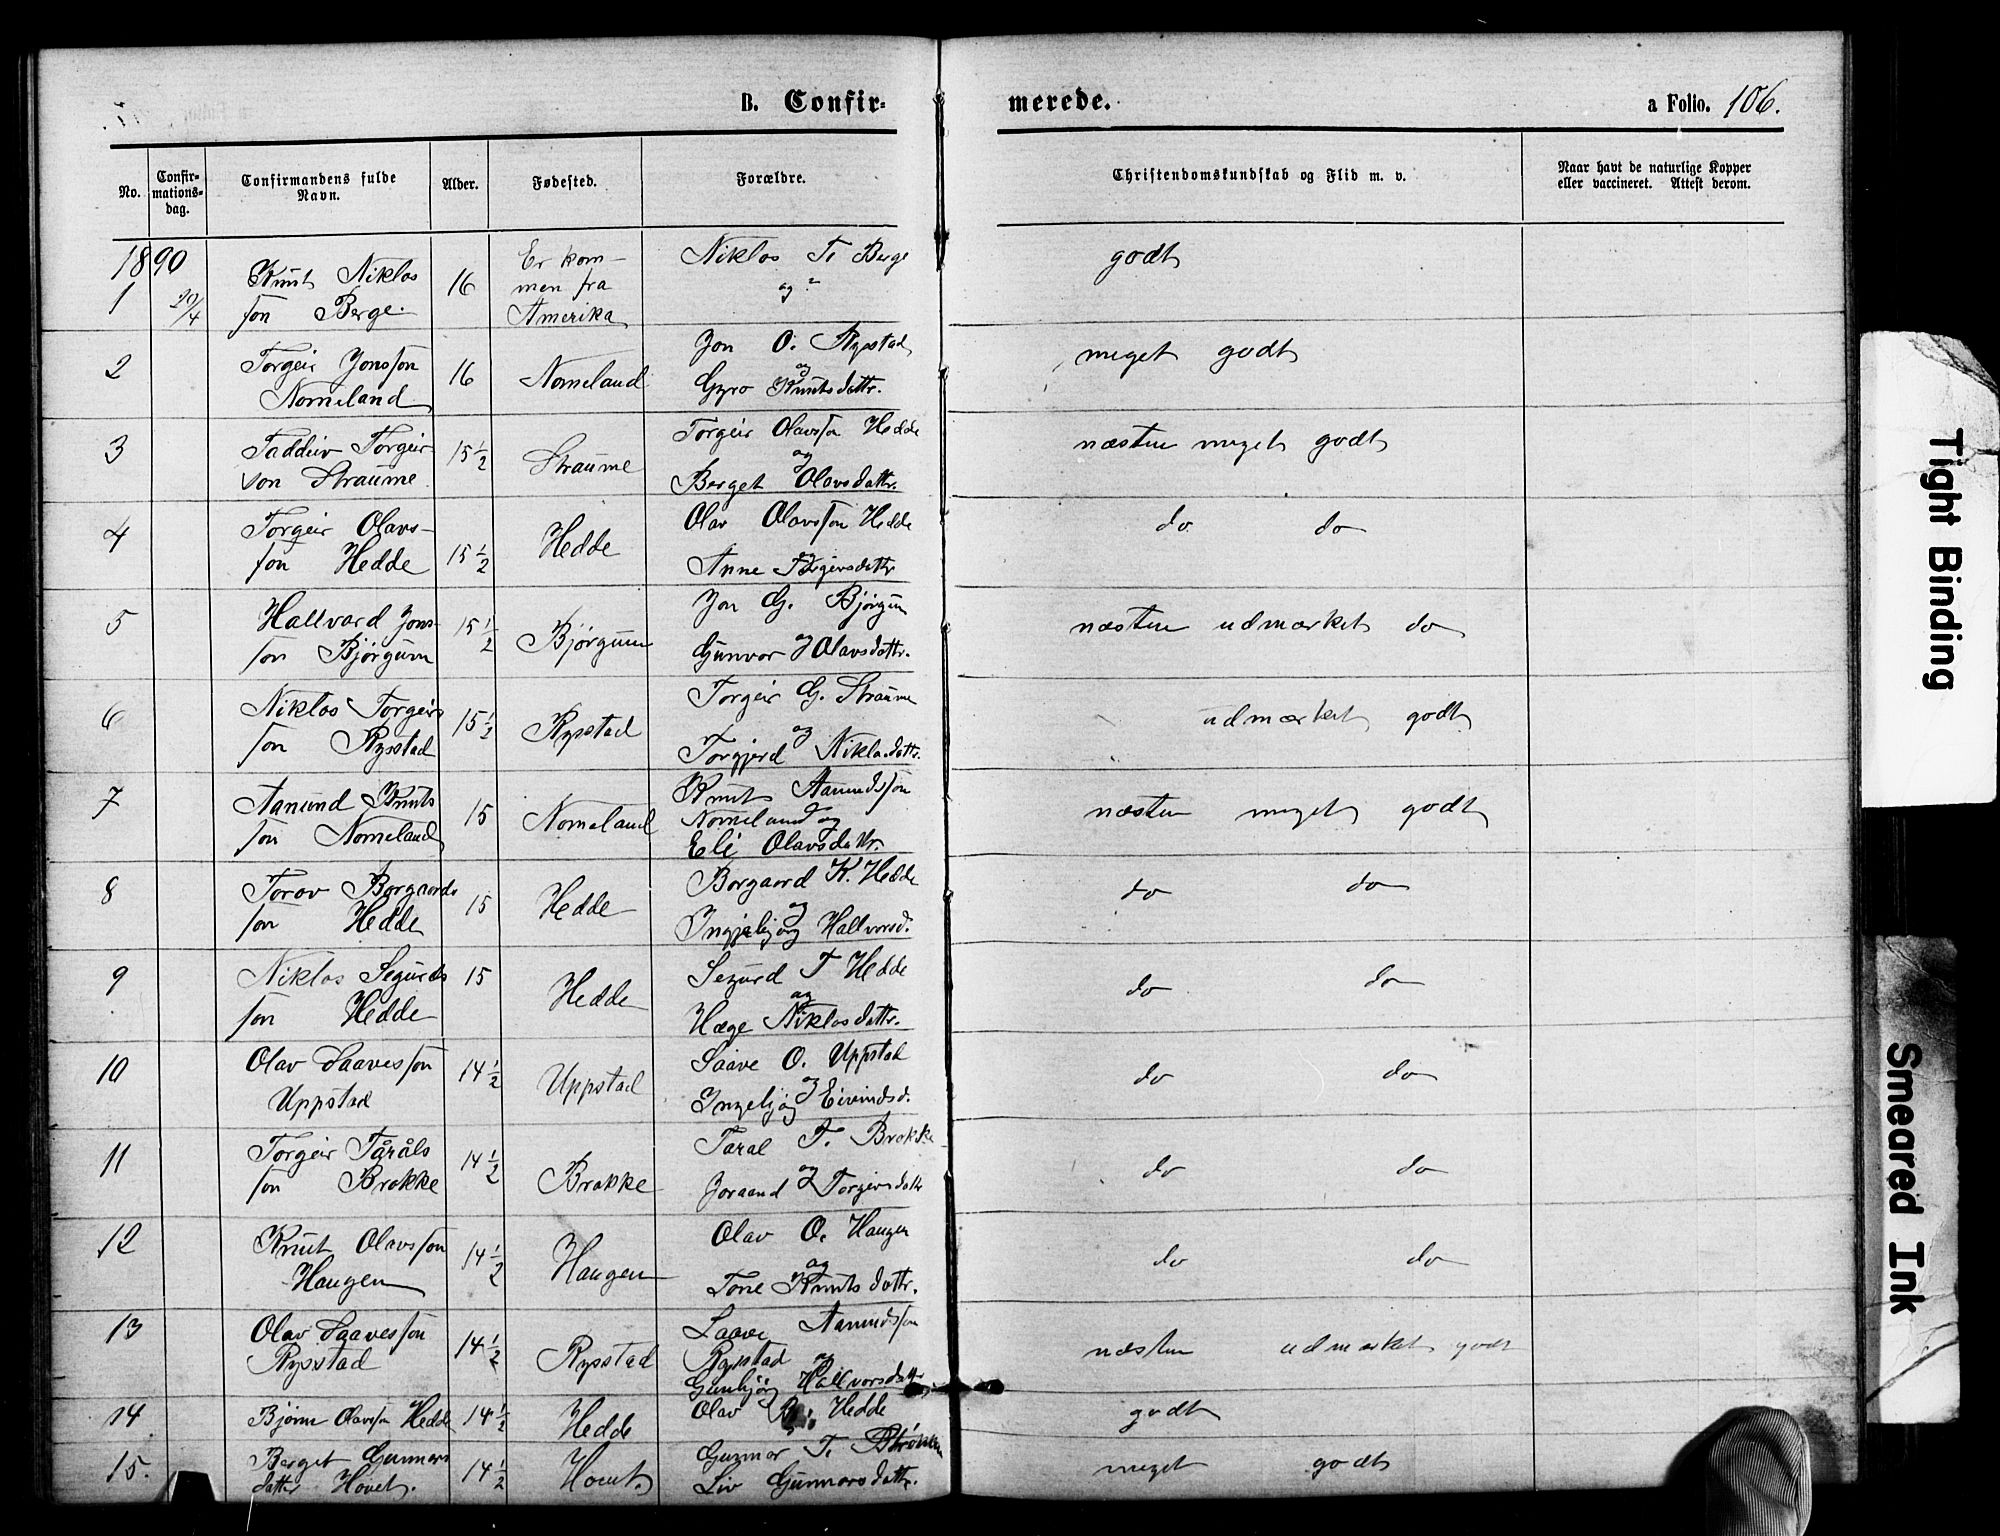 B. Confir-
merede.
a Folio. 106.
No.
Confir-
mations-
dag.
Confirmandens fulde
Navn.
Alder.
Fødested.
Forældre.
Christendomskundskab og Flid m. v.
Naar havt de naturlige Kopper
eller vaccineret. Attest derom.
1890
1 20/4 Knut Niklos
son Berge. 16 Er kom-
men fra
Amerika Niklos T. Berge
og " godt
2 Torgeir Jonsson
Nomeland 16 Nomeland Jon O. Rysstad
og
Gyro Knutsdattr. meget godt
3 Taddeiv Torgeir
son Straume 15 1/2 Straume Torgeir Olavsson Hedde
og
Berget Olavsdattr. næsten meget godt
4 Torgeir Olavs-
son Hedde 15 1/2 Hedde Olav Olavsson Hedde
og
Anne Torgeirsdattr do do
5 Hallvard Jons-
son Bjørgum 15 1/2 Bjørgum Jon G. Bjørgum
og
Gunvor Olavsdattr. næsten udmærket do
6 Niklos Torgeirs
son Rysstad 15 1/2 Rysstad Torgeir G. Straume
og
Torgjerd Niklosdattr. udmærket godt
7 Aanund Knuts
son Nomeland 15 Nomeland Knut Aanundsson
Nomeland og
Eli Olavsdattr. næsten meget godt
8 Torov Borgaards
son Hedde 15 Hedde Borgaard K. Hedde
og
Ingjebjørg Hallvorsd. do do
9 Niklos Segurds
son Hedde 15 Hedde Segurd T Hedde
og
Hæge Niklosdattr. do do
10 Olav Saavesson
Uppstad 14 1/2 Uppstad Saave O. Uppstad
og
Ingebjørg Eivindsd. do do
11 Torgeir Tåråls
son Brokke 14 1/2 Brokke Taral T. Brokke
og
Joraand Torgeirsdattr do do
12 Knut Olavsson
Haugen 14 1/2 Haugen Olav O. Haugen
og
Tone Knutsdattr. do do
13 Olav Saavesson
Rysstad 14 1/2 Rysstad Saave Aanundsson
Rysstad og
Gunbjørg Hallvorsdattr næsten udmærket godt
14 Bjørn Olavsson Hedde 14 1/2 Hedde Olav Hedde godt
15. Berget Gunnars
datter Hovet. 14 1/2 Hovet. Gunnar T.
Liv Gunnarsdattr. meget godt
Tight Binding
Smeared Ink